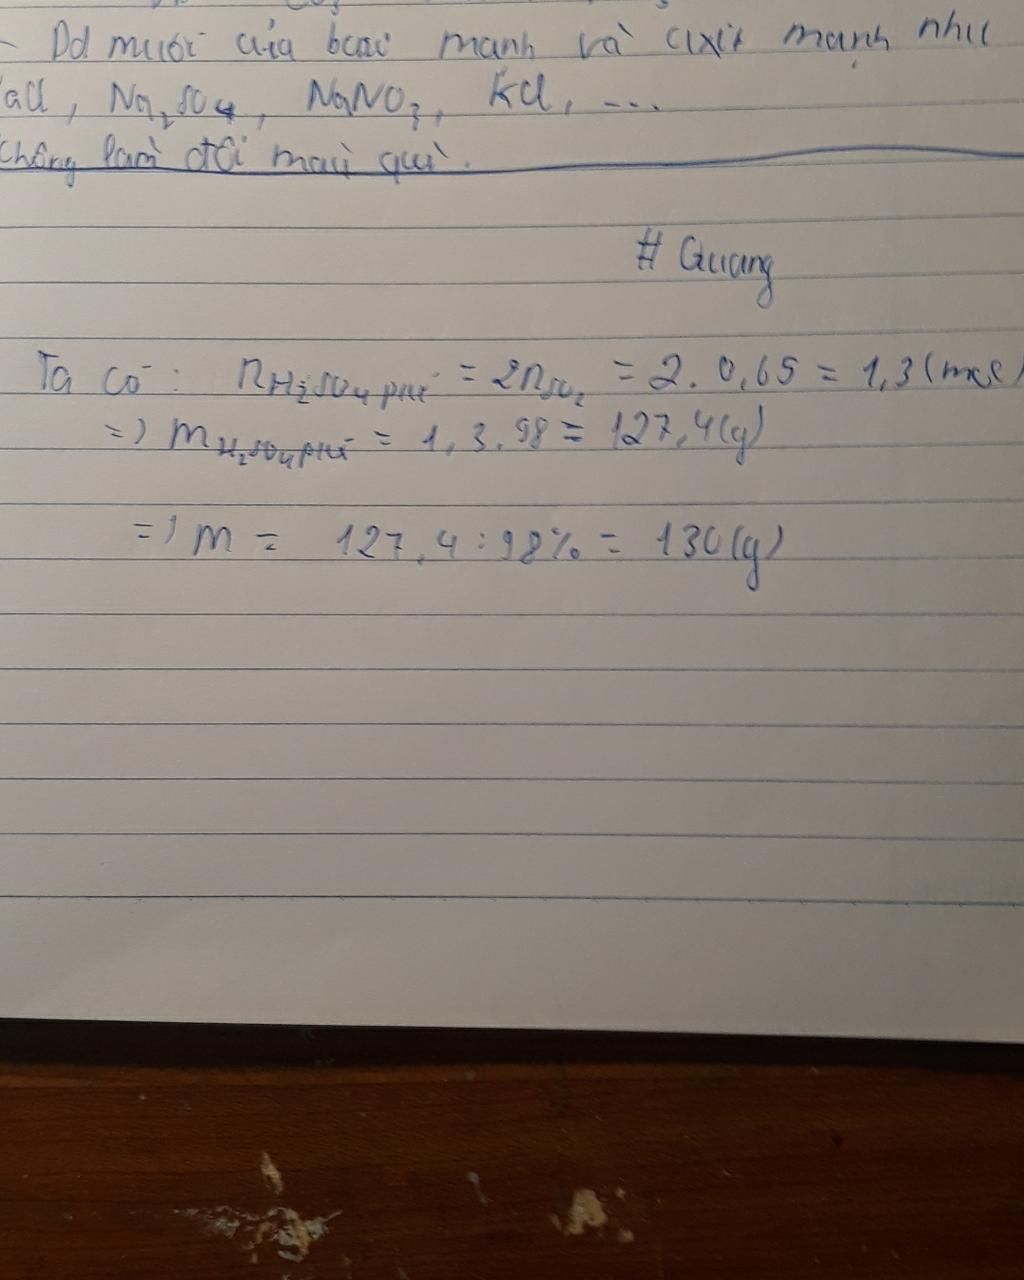 - Dd muối của bazơ mạnh và axit mạnh như
aCl, Na₂SO₄, NaNO₃, KCl, ...
không làm đổi màu quì.
# Quang
Ta có: nH₂SO₄ pứ = 2nSO₂ = 2. 0,65 = 1,3 (mol)
=> mH₂SO₄ pứ = 1,3.98 = 127,4(g)
=> m = 127,4 : 98% = 130(g)